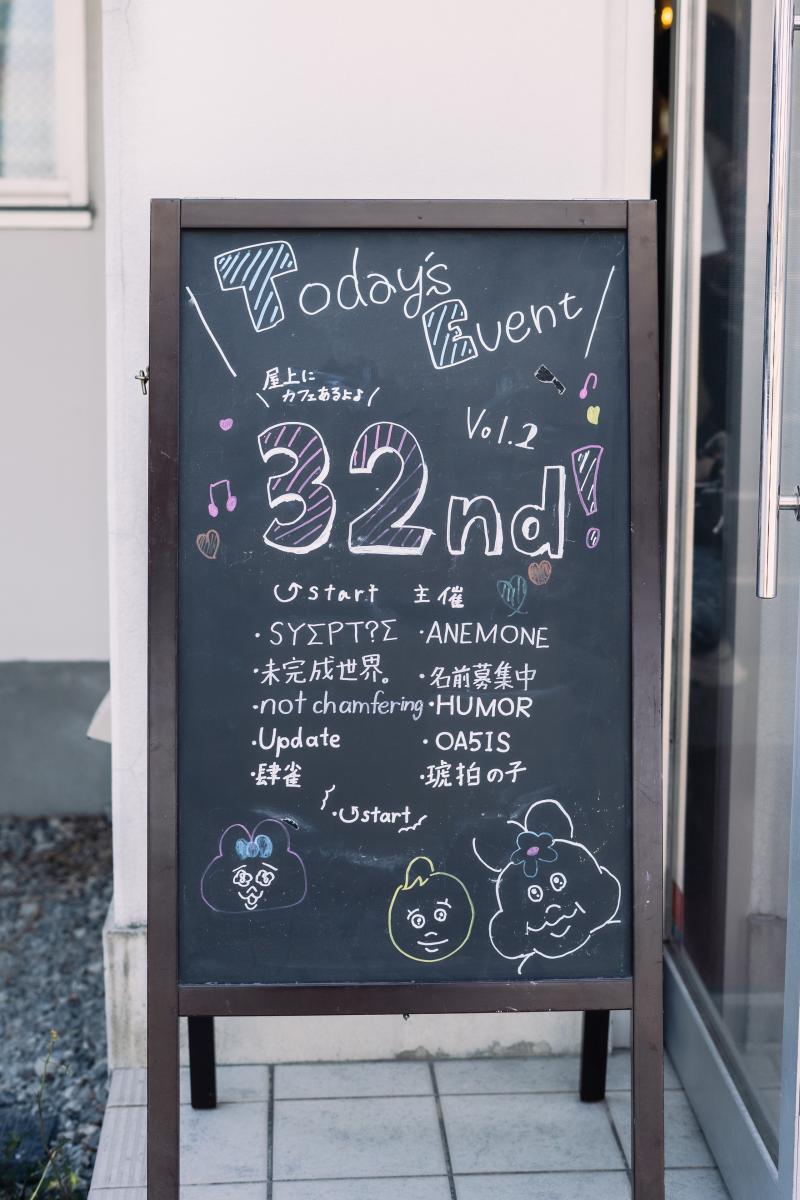 Today's
Event
屋上に
カフェあるよよ
Vol.2
32nd!
↺start 主催
・SYΣPT?Σ ・ANEMONE
・未完成世界。 ・名前募集中
・not chamfering ・HUMOR
・Update ・OA5IS
・肆雀 ・琥拍の子
・↺start